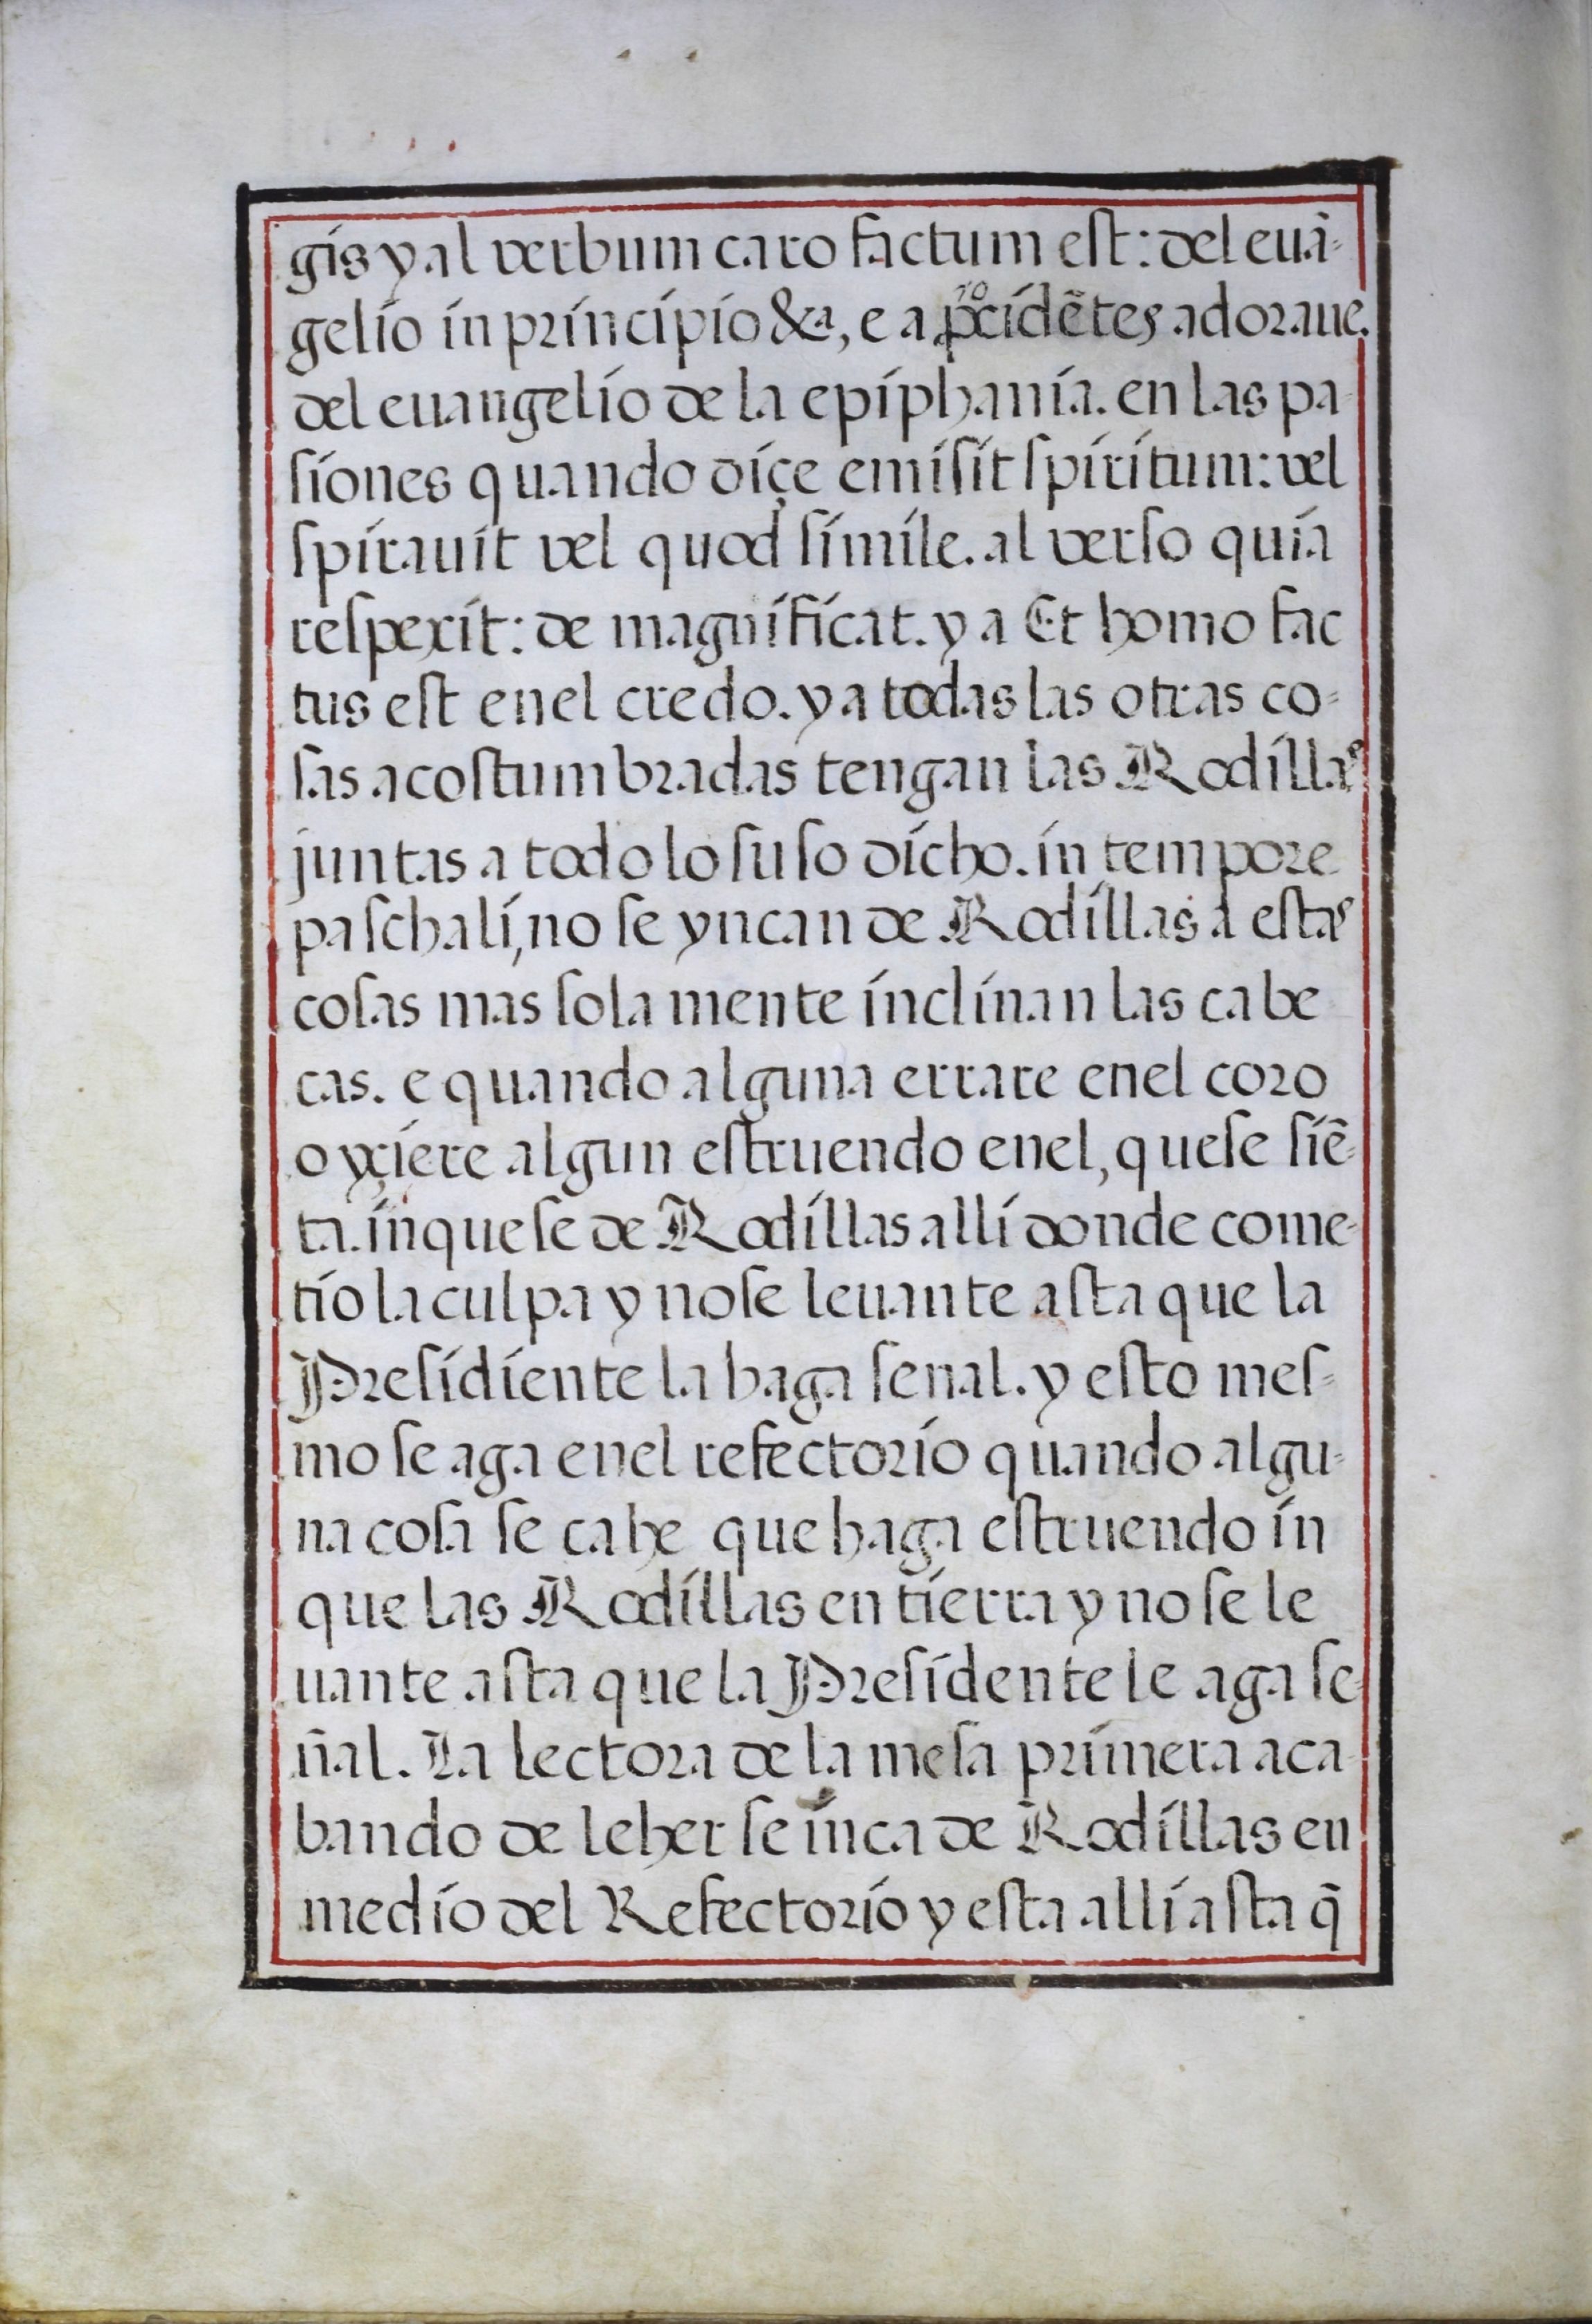 gis y al verbum caro factum est: del euā-
gelio in principio &a, e a procidētes adoraue.
del euangelio de la epiphania. en las pa-
siones quando diçe emisit spiritum: vel
spirauit vel quod simile. al verso quia
respexit: de magnificat. y a Et homo fac
tus est enel credo. y a todas las otras co-
sas acostumbradas tengan las Rodillas
juntas a todo lo suso dicho. in tempore
paschali, no se yncan de Rodillas a estas
cosas mas sola mente inclinan las cabe
cas. e quando alguna errare enel coro
o yçiere algun estruendo enel, que se siē-
ta. inquese de Rodillas alli donde come-
tio la culpa y no se leuante asta que la
Presidiente la haga senal. y esto mes-
mo se aga enel refectorio quando algu-
na cosa se cahe que haga estruendo in
que las Rodillas en tierra y no se le
uante asta que la Presidente le aga se-
ñal. La lectora de la mesa primera aca-
bando de leher se inca de Rodillas en
medio del Refectorio y esta alli asta q̄